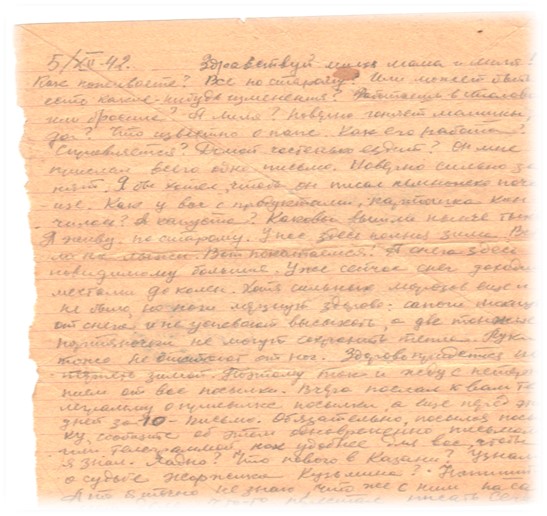 5/XII-42. Здравствуй милая мама и Миля!
Как поживаете? Все по старому? Или может быть
есть какие-нибудь изменения? Питаешься в столовой
или бросила? А Миля? Наверно гоняет машины,
да? Что известно о папе. Как его работа?
Справляется? Домой частенько ездит? Он мне
прислал всего одно письмо. Наверно сильно за-
нят. Я бы хотел, чтоб он писал немножко поча-
ще. Как у вас с продуктами, картошка кон-
чилась? А капуста? Каковы вышли
Я живу по старому. Уже здесь полная зима.
лыжи. Вот покатаемся! А снега здесь
повидимому большие. Уже сейчас снег доходит
местами до колен. Хотя сильных морозов еще и
не было, но ноги мерзнут здорово: сапоги
от снега и не успевают высыхать, а две
портянки не могут сохранить тепла. Руки
тоже не отстают от ног. Здорово придется
зимой. Поэтому так и жду с нетерпе-
нием от вас посылки. Вчера послал к вам те-
леграмму о посылки, а еще перед
дней за 10 - письмо. Обязательно, послав посыл-
ку, сообщите об этом одновременно письмом
или телеграммой, как удобнее для вас, чтобы
я знал. Ладно? Что нового в Казани? Узнал
о судьбе Жоржика Кузьмина? Напиши
А то я ничего не знаю что же с ним
писать